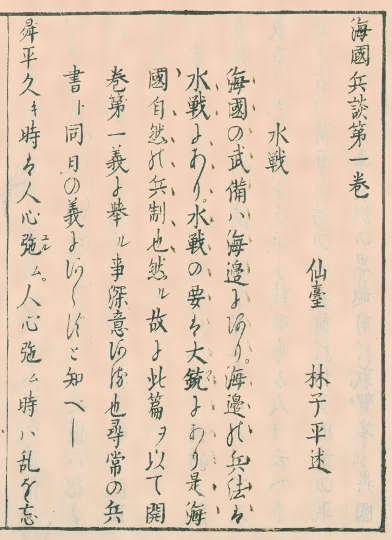 海國兵談第一巻
仙臺　林子平述
水戦
海國の武備ハ海邉にあり。海邉の兵法は
水戦にあり。水戦の要は大銃にあり是海
國自然の兵制也然ル故に此篇ヲ以て開
巻第一義に舉ル事深意ある也尋常の兵
書ト同日の義にあらずと知べし
昇平久キ時は人心弛ム。人心弛ム時ハ乱を忘